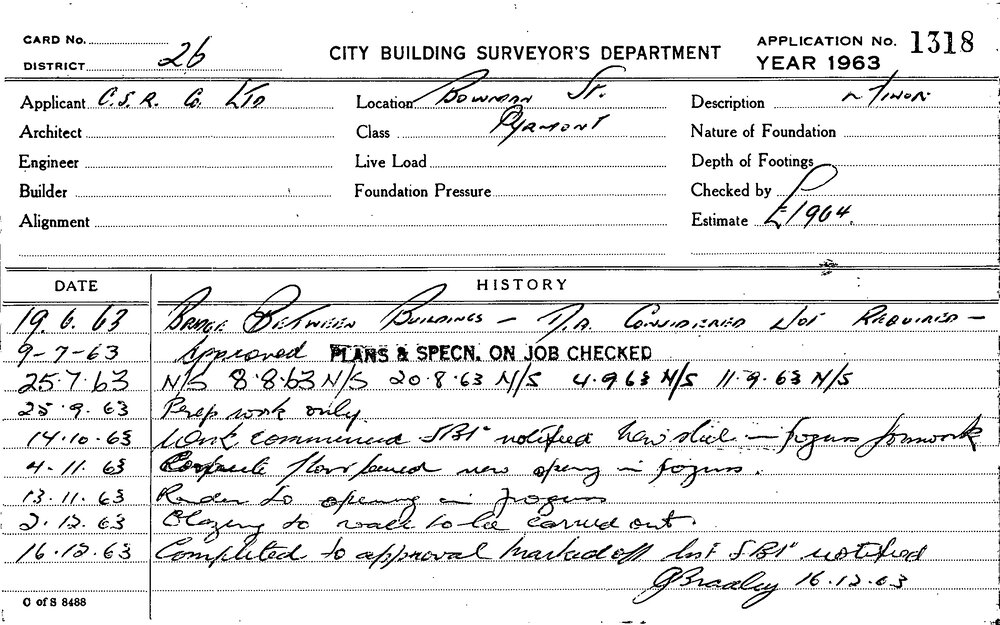 CARD No.
DISTRICT 26
CITY BUILDING SURVEYOR'S DEPARTMENT
APPLICATION No. 1318
YEAR 1963
Applicant C.S.R. Co. LTD
Location Bowman St.
Description Minor
Architect
Class Pyrmont
Nature of Foundation
Engineer
Live Load
Depth of Footings
Builder
Foundation Pressure
Checked by
Alignment
Estimate £1964.
DATE
HISTORY
19.6.63 Bridge Between Buildings – D.A. Considered Not Required –
9-7-63 Approved PLANS & SPECN. ON JOB CHECKED
25.7.63 N/S 8.8.63 N/S 20.8.63 N/S 4.9.63 N/S 11.9.63 N/S
25.9.63 Prep work only
14.10.63 Work commenced notified New steel – formwork
4.11.63 Concrete floor poured new opening in
13.11.63 Render to opening in progress
2.12.63 Glazing to walls to be carried out.
16.12.63 Completed to approval Marked off notified
GBradley 16.12.63
C of S 8488